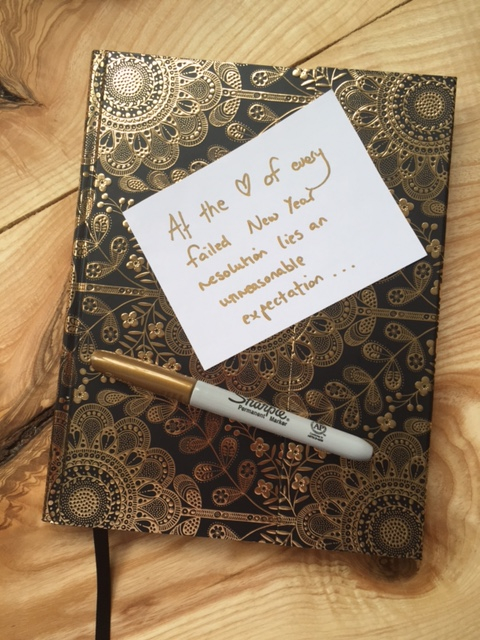 At the ♡ of every
failed New Year
resolution lies an
unreasonable
expectation ...
Sharpie
Permanent Marker